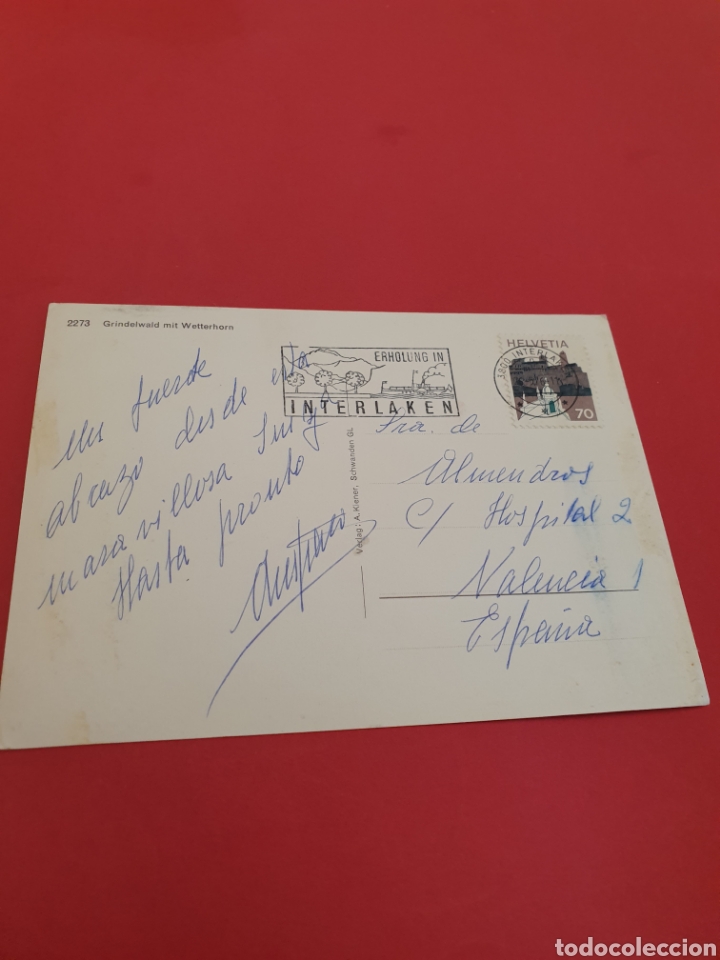 2273 Grindelwald mit Wetterhorn
Un fuerte
abrazo desde esta
maravillosa Suiza
Hasta pronto
ERHOLUNG IN
INTERLAKEN
HELVETIA
70
3800 INTERLAKEN
Verlag: A. Kiener, Schwanden GL
Sra. de
Almendros
C/ Hospital 2
Valencia 1
España
todocoleccion